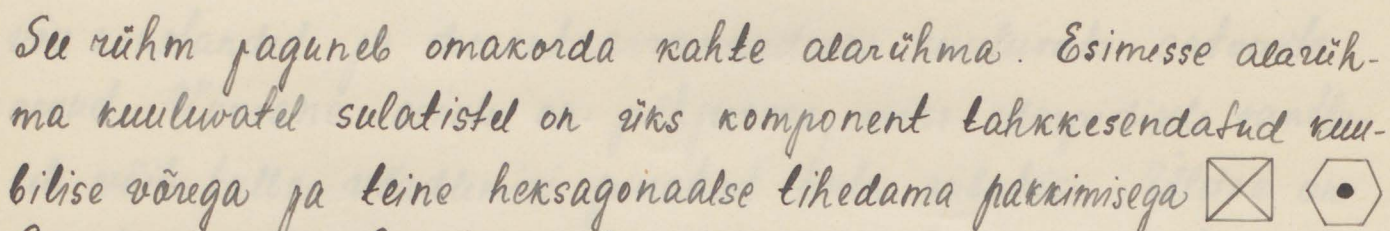 See rühm jaguneb omakorda kahte alarühma. Esimesse alarüh-
ma kuuluvatel sulatistel on üks komponent tahkkesendatud kuu-
bilise võrega ja teine heksagonaalse tihedama pakkimisega